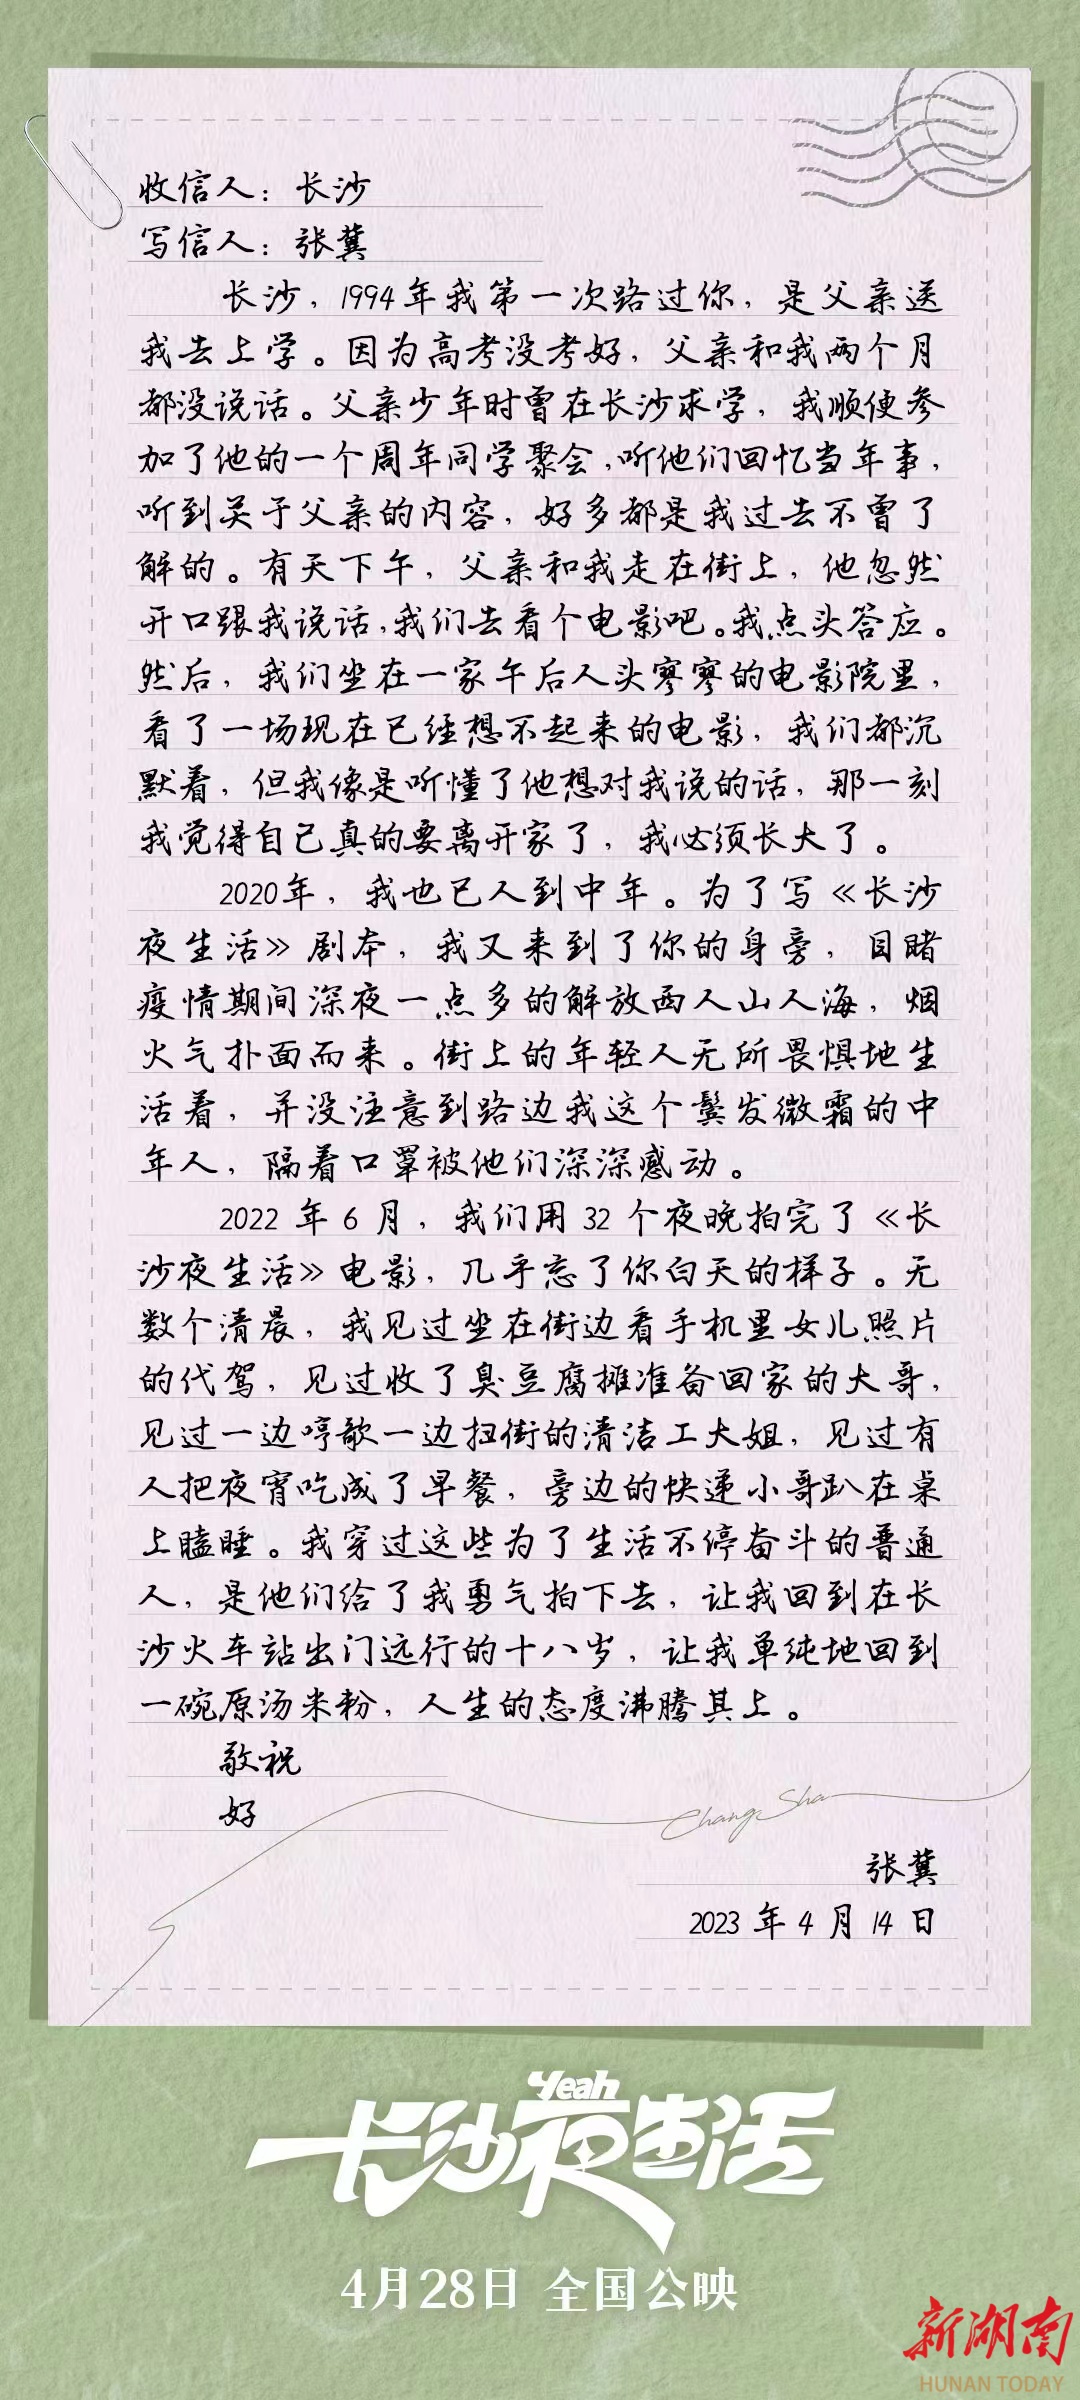 收信人：长沙
写信人：张冀
长沙，1994年我第一次路过你，是父亲送
我去上学。因为高考没考好，父亲和我两个月
都没说话。父亲少年时曾在长沙求学，我顺便参
加了他的一个周年同学聚会，听他们回忆当年事，
听到关于父亲的内容，好多都是我过去不曾了
解的。有天下午，父亲和我走在街上，他忽然
开口跟我说话，我们去看个电影吧。我点头答应。
然后，我们坐在一家午后人头寥寥的电影院里，
看了一场现在已经想不起来的电影，我们都沉
默着，但我像是听懂了他想对我说的话，那一刻
我觉得自己真的要离开家了，我必须长大了。
2020年，我也已人到中年。为了写《长沙
夜生活》剧本，我又来到了你的身旁，目睹
疫情期间深夜一点多的解放西人山人海，烟
火气扑面而来。街上的年轻人无所畏惧地生
活着，并没注意到路边我这个鬓发微霜的中
年人，隔着口罩被他们深深感动。
2022 年 6 月，我们用 32 个夜晚拍完了《长
沙夜生活》电影，几乎忘了你白天的样子。无
数个清晨，我见过坐在街边看手机里女儿照片
的代驾，见过收了臭豆腐摊准备回家的大哥，
见过一边哼歌一边扫街的清洁工大姐，见过有
人把夜宵吃成了早餐，旁边的快递小哥趴在桌
上瞌睡。我穿过这些为了生活不停奋斗的普通
人，是他们给了我勇气拍下去，让我回到在长
沙火车站出门远行的十八岁，让我单纯地回到
一碗原汤米粉，人生的态度沸腾其上。
敬祝
好
Chang Sha
张冀
2023 年 4 月 14 日
Yeah
长沙夜生活
4月28日 全国公映
新湖南
HUNAN TODAY